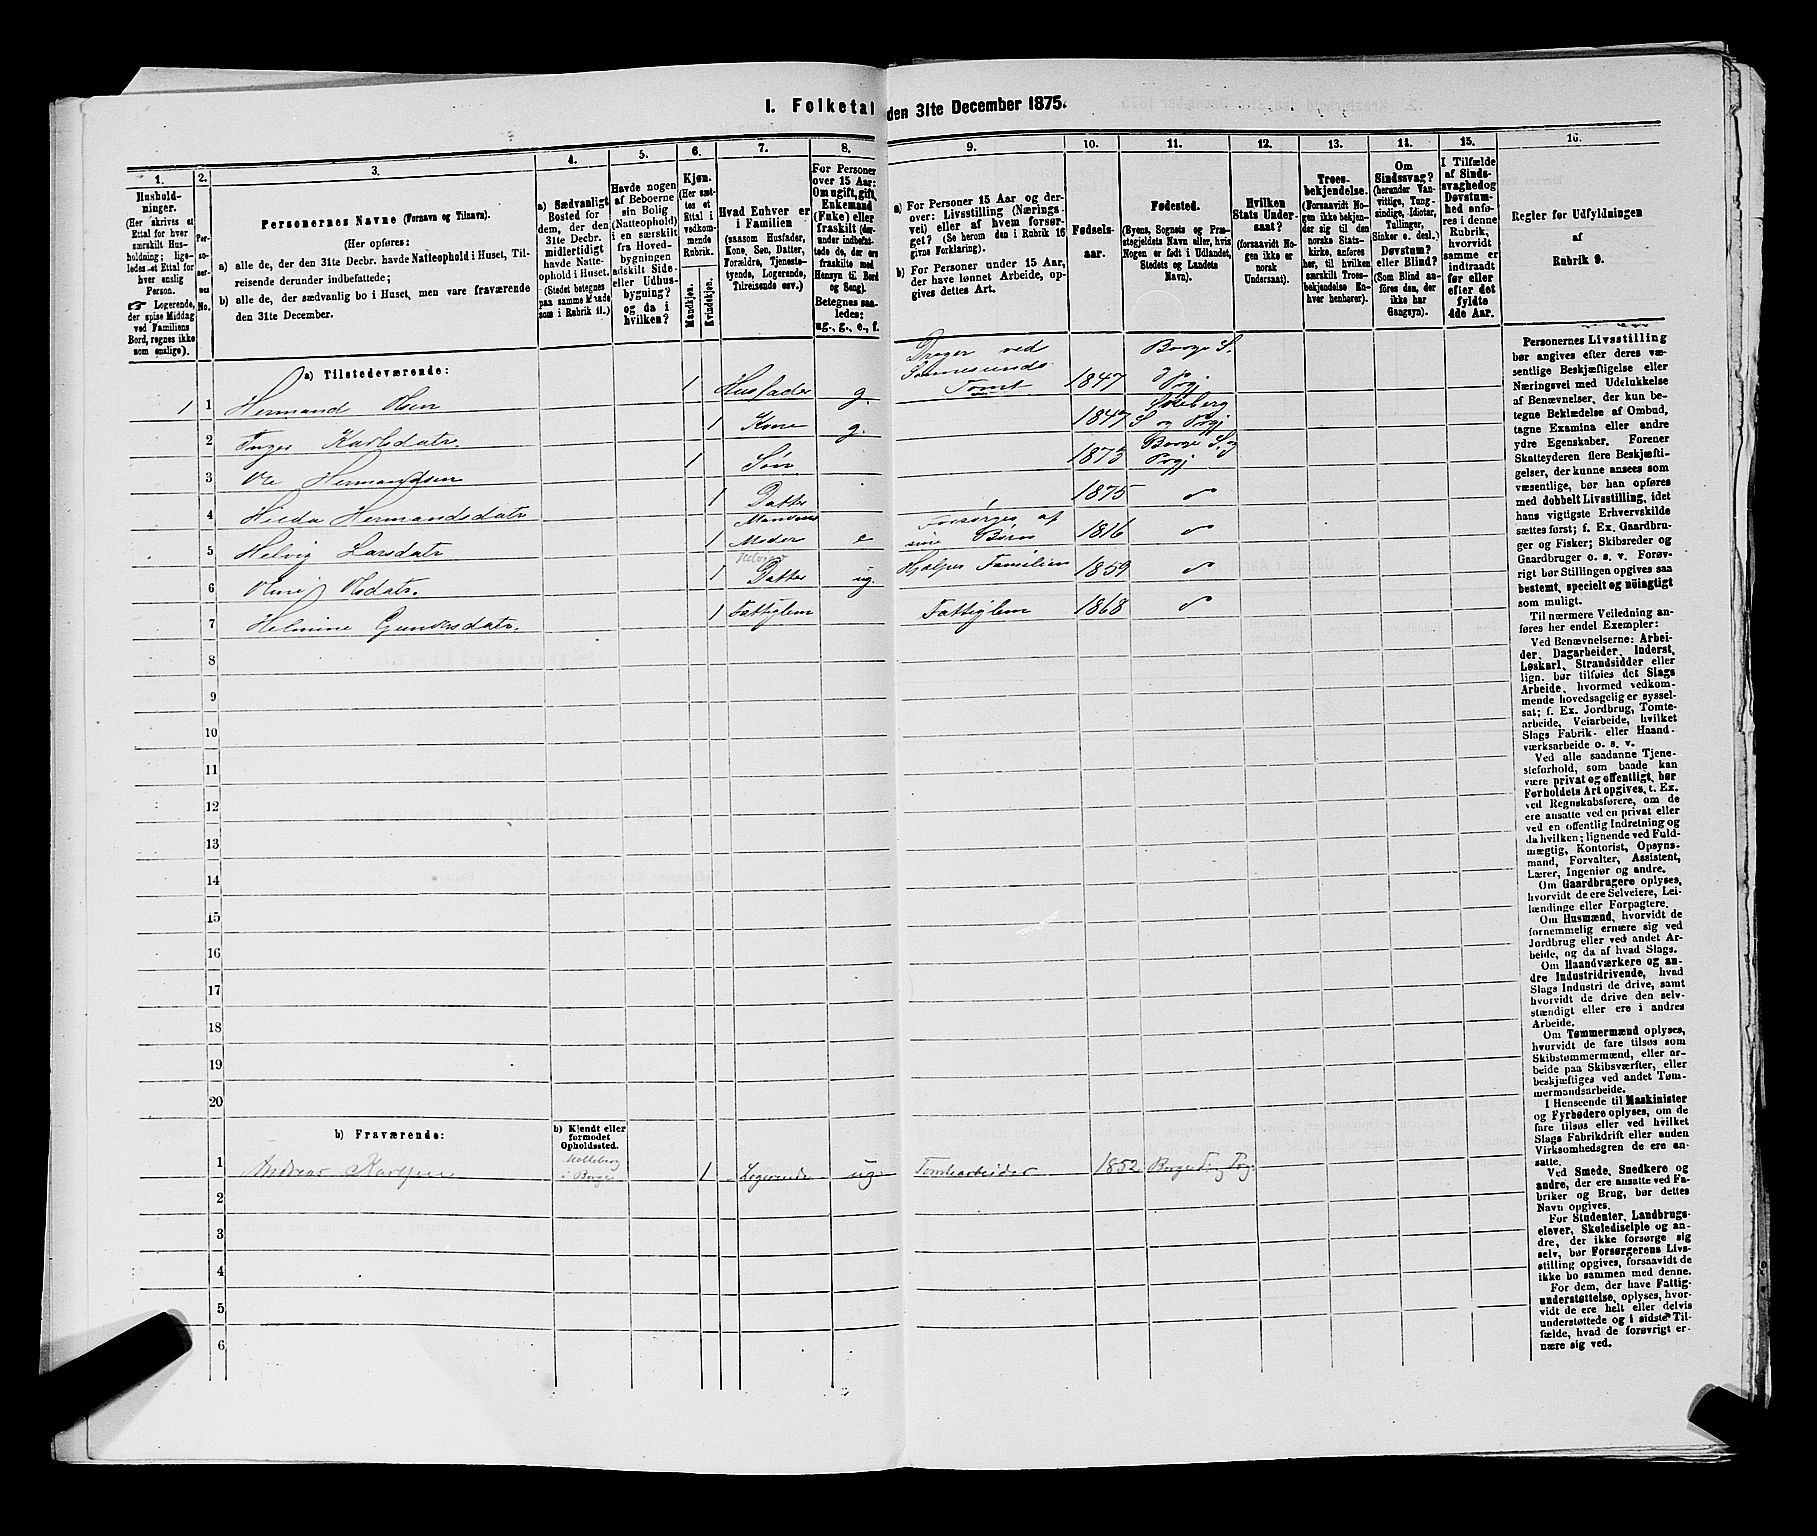 I. Folketal den 31te December 1875.
1.
Hushold-
ninger.
(Her skrives et
Ettal for hver
særskilt Hus-
holdning; lige-
ledes et Ettal for
hver enslig
Person.
☞ Logerende,
der spise Middag
ved Familiens
Bord, regnes ikke
som enslige).
2.
Per-
so-
ner-
nes
No.
3.
Personernes Navne (Fornavn og Tilnavn).
(Her opføres:
a) alle de, der den 31te Decbr. havde Natteophold i Huset, Til-
reisende derunder indbefattede;
b) alle de, der sædvanlig bo i Huset, men vare fraværende
den 31te December.
4.
a) Sædvanligt
Bosted for
dem, der den
31te Decbr.
midlertidigt
havde Natte-
ophold i Huset.
(Stedet betegnes
paa samme Maade
som i Rubrik 11.)
5.
Havde nogen
af Beboerne
sin Bolig
(Natteophold)
i en særskilt
fra Hoved-
bygningen
adskilt Side-
eller Udhus-
bygning?
og da i
hvilken?
6.
Kjøn.
(Her sæt-
tes et
Ettal i
vedkom-
mende
Rubrik.
Mandkjøn.
Kvindekjøn.
7.
Hvad Enhver er
i Familien
(saasom Husfader,
Kone, Søn, Datter,
Forældre, Tjeneste-
tyende, Logerende,
Tilreisende osv.)
8.
For Personer
over 15 Aar:
Om ugift, gift,
Enkemand
(Enke) eller
fraskilt (der-
under indbefat-
tede de, der ere
fraskilte med
Hensyn til Bord
og Seng).
Betegnes saa-
ledes:
ug., g., e., f.
9.
a) For Personer 15 Aar og der-
over: Livsstilling (Nærings-
vei) eller af hvem forsør-
get? (Se herom den i Rubrik 16
givne Forklaring).
b) For Personer under 15 Aar,
der have lønnet Arbeide, op-
gives dettes Art.
10.
Fødsels-
aar.
11.
Fødested.
(Byens, Sognets og Præ-
stegjeldets Navn eller, hvis
Nogen er født i Udlandet,
Stedets og Landets
Navn).
12.
Hvilken
Stats Under-
saat?
(forsaavidt No-
gen ikke er
norsk
Undersaat).
13.
Troes-
bekjendelse.
(Forsaavidt No-
gen ikke bekjen-
der sig til den
norske Stats-
kirke, anføres
her, til hvilken
særskilt Troes-
bekjendelse En-
hver henhører).
14.
Om
Sindssvag?
(herunder Van-
vittige, Tung-
sindige, Idioter,
Tullinger,
Sinker o. desl.)
Døvstum?
eller Blind?
(Som Blind an-
føres den, der
ikke har
Gangsyn).
15.
I Tilfælde
af Sinds-
svaghed og
Døvstum-
hed anfø-
res i denne
Rubrik,
hvorvidt
samme er
indtraadt
før eller
efter det
fyldte
4de Aar.
16.
Regler for Udfyldningen
af
Rubrik 9.
a) Tilstedeværende:
1 1 Hermand Olsen 1 Husfader g. Drager ved Sannesunds Tomt 1847 Borge S. og Prgj
2 Inger Karlsdatr. 1 Kone g. 1847 Skeberg S og Prgj
3 Ole Hermandsen 1 Søn 1873 Borge S. og Prgj
4 Hilda Hermandsdatr 1 Datter 1875
5 Helvig Larsdatr 1 Mandens Moder e Forsørges af sine Børn 1816
6 Olsdatr. 1 Helvigs Datter ug. Hjælper Familien 1859
7 Helmine Gundersdatr. 1 Fattiglem Fattiglem 1868
8
9
10
11
12
13
14
15
16
17
18
19
20
b) Fraværende:
b) Kjendt eller
formodet
Opholdssted.
1 Andreas Karlsen i Borge 1 Logerende ug. Tomtearbeider 1852 Borge S og Prgj
2
3
4
5
6
Personernes Livsstilling
bør angives efter deres væ-
sentlige Beskjæftigelse eller
Næringsvei med Udelukkelse
af Benævnelser, der kun be-
tegne Beklædelse af Ombud,
tagne Examina eller andre
ydre Egenskaber. Forener
Skatteyderen flere Beskjæfti-
gelser, der kunne ansees som
væsentlige, bør han opføres
med dobbelt Livsstilling, idet
hans vigtigste Erhvervskilde
sættes først; f. Ex. Gaardbru-
ger og Fisker; Skibsreder og
Gaardbruger o. s. v. Forøv-
rigt bør Stillingen opgives saa
bestemt, specielt og nøiagtigt
som muligt.
Til nærmere Veiledning an-
føres her endel Exempler:
Ved Benævnelserne: Arbei-
der, Dagarbeider, Inderst,
Løskarl, Strandsidder eller
lign. bør tilføies det Slags
Arbeide, hvormed vedkom-
mende hovedsagelig er syssel-
sat; f. Ex. Jordbrug, Tomte-
arbeide, Veiarbeide, hvilket
Slags Fabrik- eller Haand-
værksarbeide o. s. v.
Ved alle saadanne Tjene-
steforhold, som baade kan
være privat og offentligt, bør
Forholdets Art opgives, t. Ex.
ved Regnskabsførere, om de
ere ansatte ved en privat eller
ved en offentlig Indretning og
da hvilken; lignende ved Fuld-
mægtig, Kontorist, Opsyns-
mand, Forvalter, Assistent,
Lærer, Ingeniør og andre.
Om Gaardbrugere oplyses,
hvorvidt de ere Selveiere, Lei-
lændinge eller Forpagtere.
Om Husmænd, hvorvidt de
fornemmelig ernære sig ved
Jordbrug eller ved andet Ar-
beide, og da af hvad Slags.
Om Haandværkere og an-
dre Industridrivende, hvad
Slags Industri de drive, samt
hvorvidt de drive den selv-
stændigt eller ere i andres
Arbeide.
Om Tømmermænd oplyses,
hvorvidt de fare tilsøs som
Skibstømmermænd, eller ar-
beide paa Skibsværfter, eller
beskjæftiges ved andet Tøm-
mermandsarbeide.
I Henseende til Maskinister
og Fyrbødere oplyses, om de
fare tilsøs eller ved hvilket
Slags Fabrikdrift eller anden
Virksomhedsgren de ere an-
satte.
Ved Smede, Snedkere og
andre, der ere ansatte ved Fa-
briker og Brug, bør dettes
Navn opgives.
For Studenter, Landbrugs-
elever, Skoledisciple og an-
dre, der ikke forsørge sig
selv, bør Forsørgerens Livs-
stilling opgives, forsaavidt de
ikke bo sammen med denne.
For dem, der have Fattig-
understøttelse, oplyses, hvor-
vidt de ere helt eller delvis
understøttede og i sidste Til-
fælde, hvad de forøvrigt er-
nære sig ved.